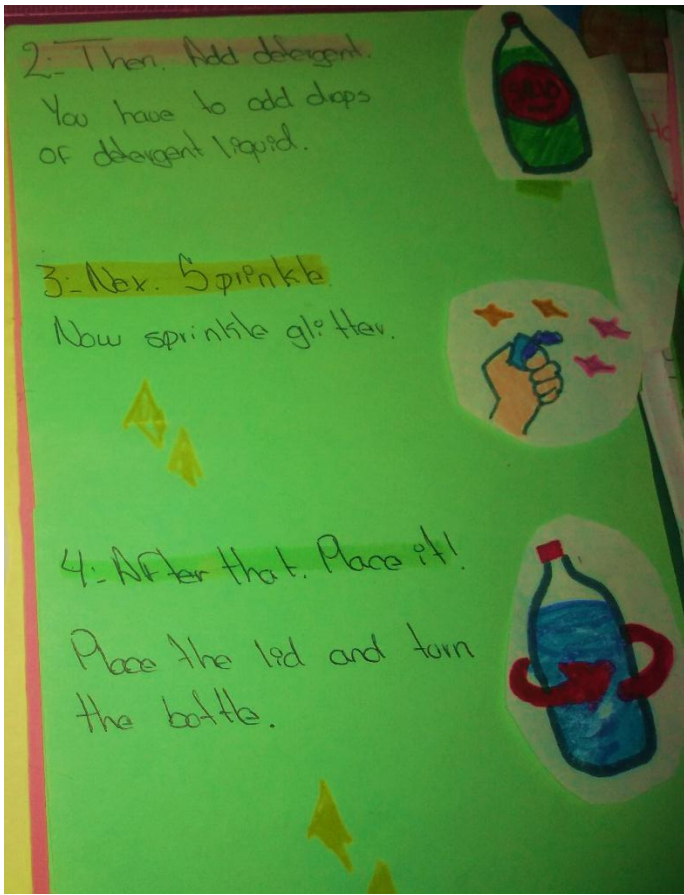 2:- Then. Add detergent.
You have to add drops
of detergent liquid.
3:- Nex. Sprinkle.
Now sprinkle glitter.
4:- After that. Place it!
Place the lid and turn
the bottle.